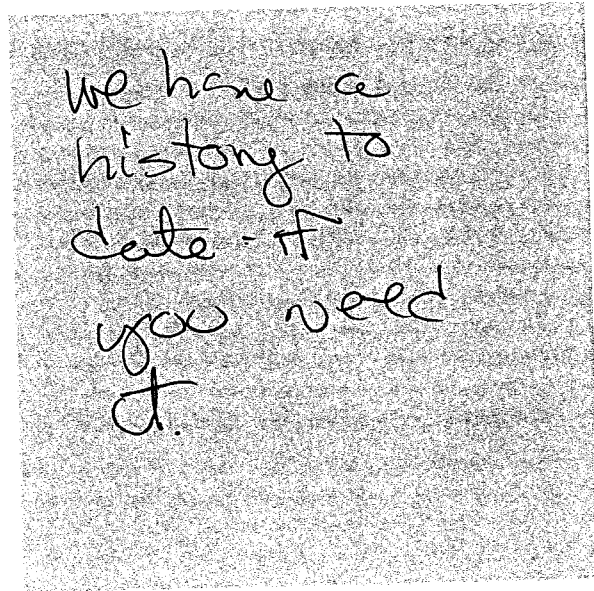 we have a
history to
date - if
you need
it.